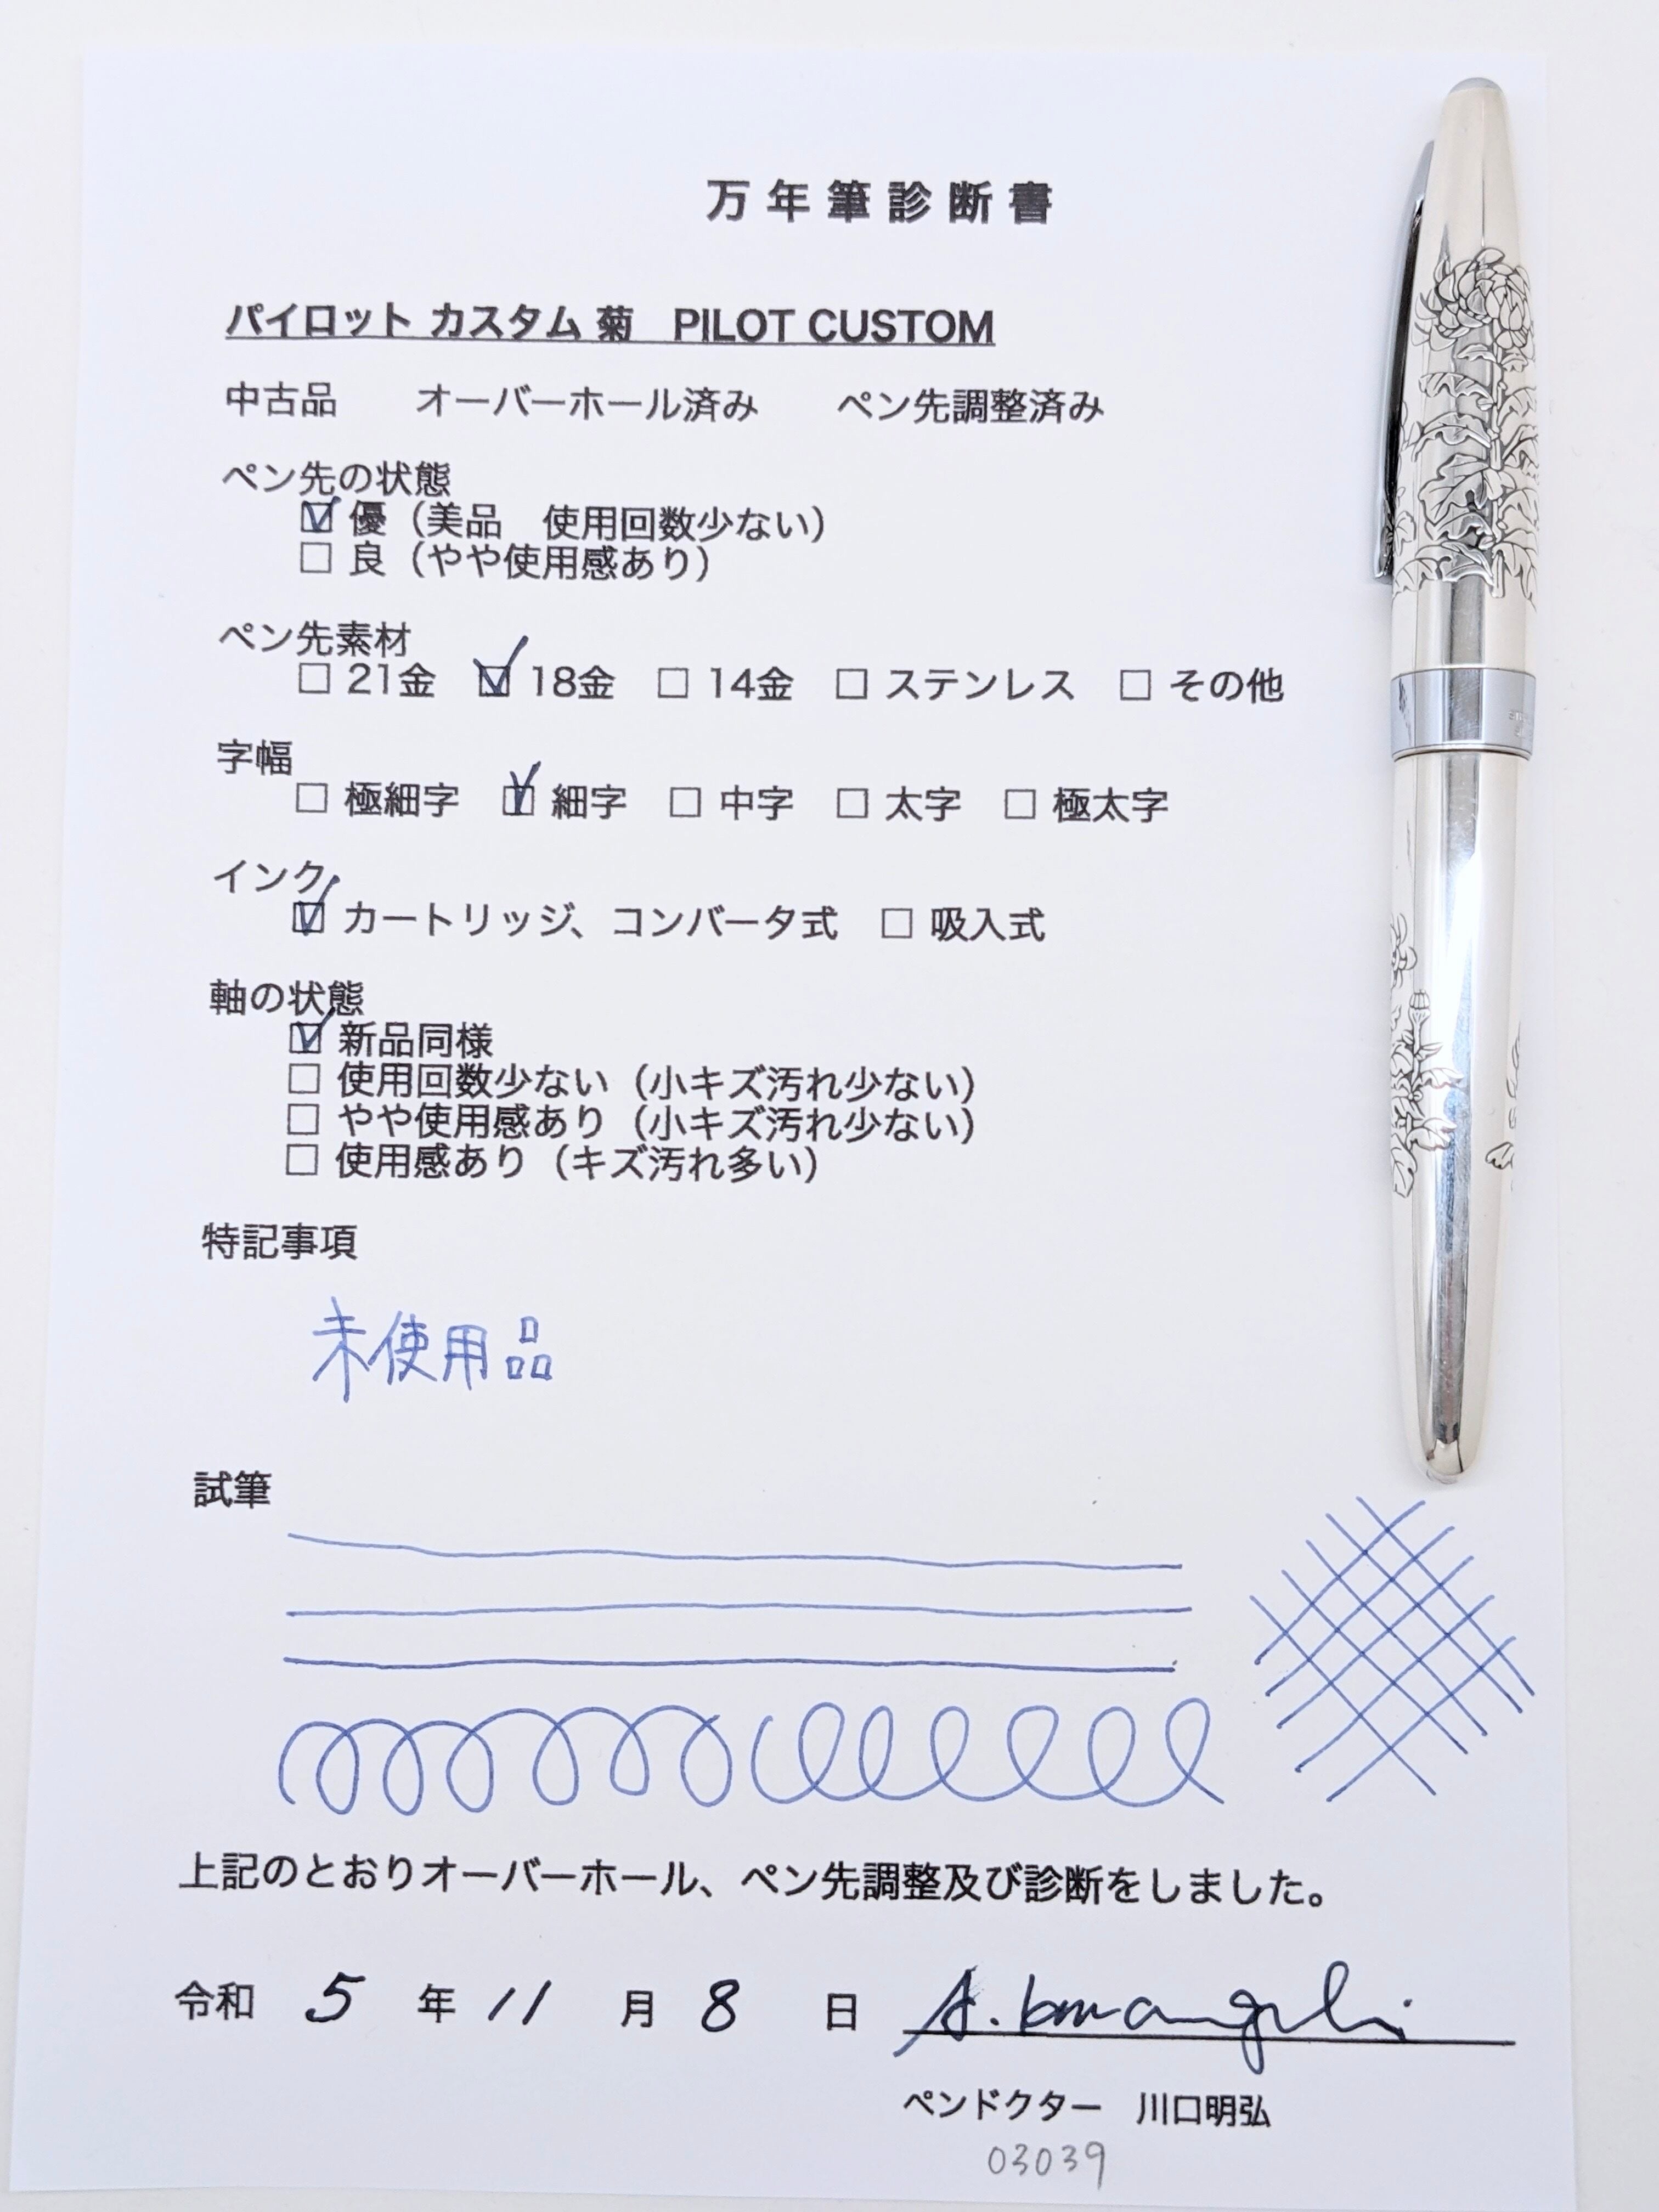 万年筆診断書
パイロット カスタム 菊　PILOT CUSTOM
中古品　　オーバーホール済み　　ペン先調整済み
ペン先の状態
☑ 優（美品　使用回数少ない）
□ 良（やや使用感あり）
ペン先素材
□ 21金　☑ 18金　□ 14金　□ ステンレス　□ その他
字幅
□ 極細字　☑ 細字　□ 中字　□ 太字　□ 極太字
インク
☑ カートリッジ、コンバータ式　□ 吸入式
軸の状態
☑ 新品同様
□ 使用回数少ない（小キズ汚れ少ない）
□ やや使用感あり（小キズ汚れ少ない）
□ 使用感あり（キズ汚れ多い）
特記事項
未使用品
試筆
上記のとおりオーバーホール、ペン先調整及び診断をしました。
令和 5 年 11 月 8 日
ペンドクター　川口明弘
03039